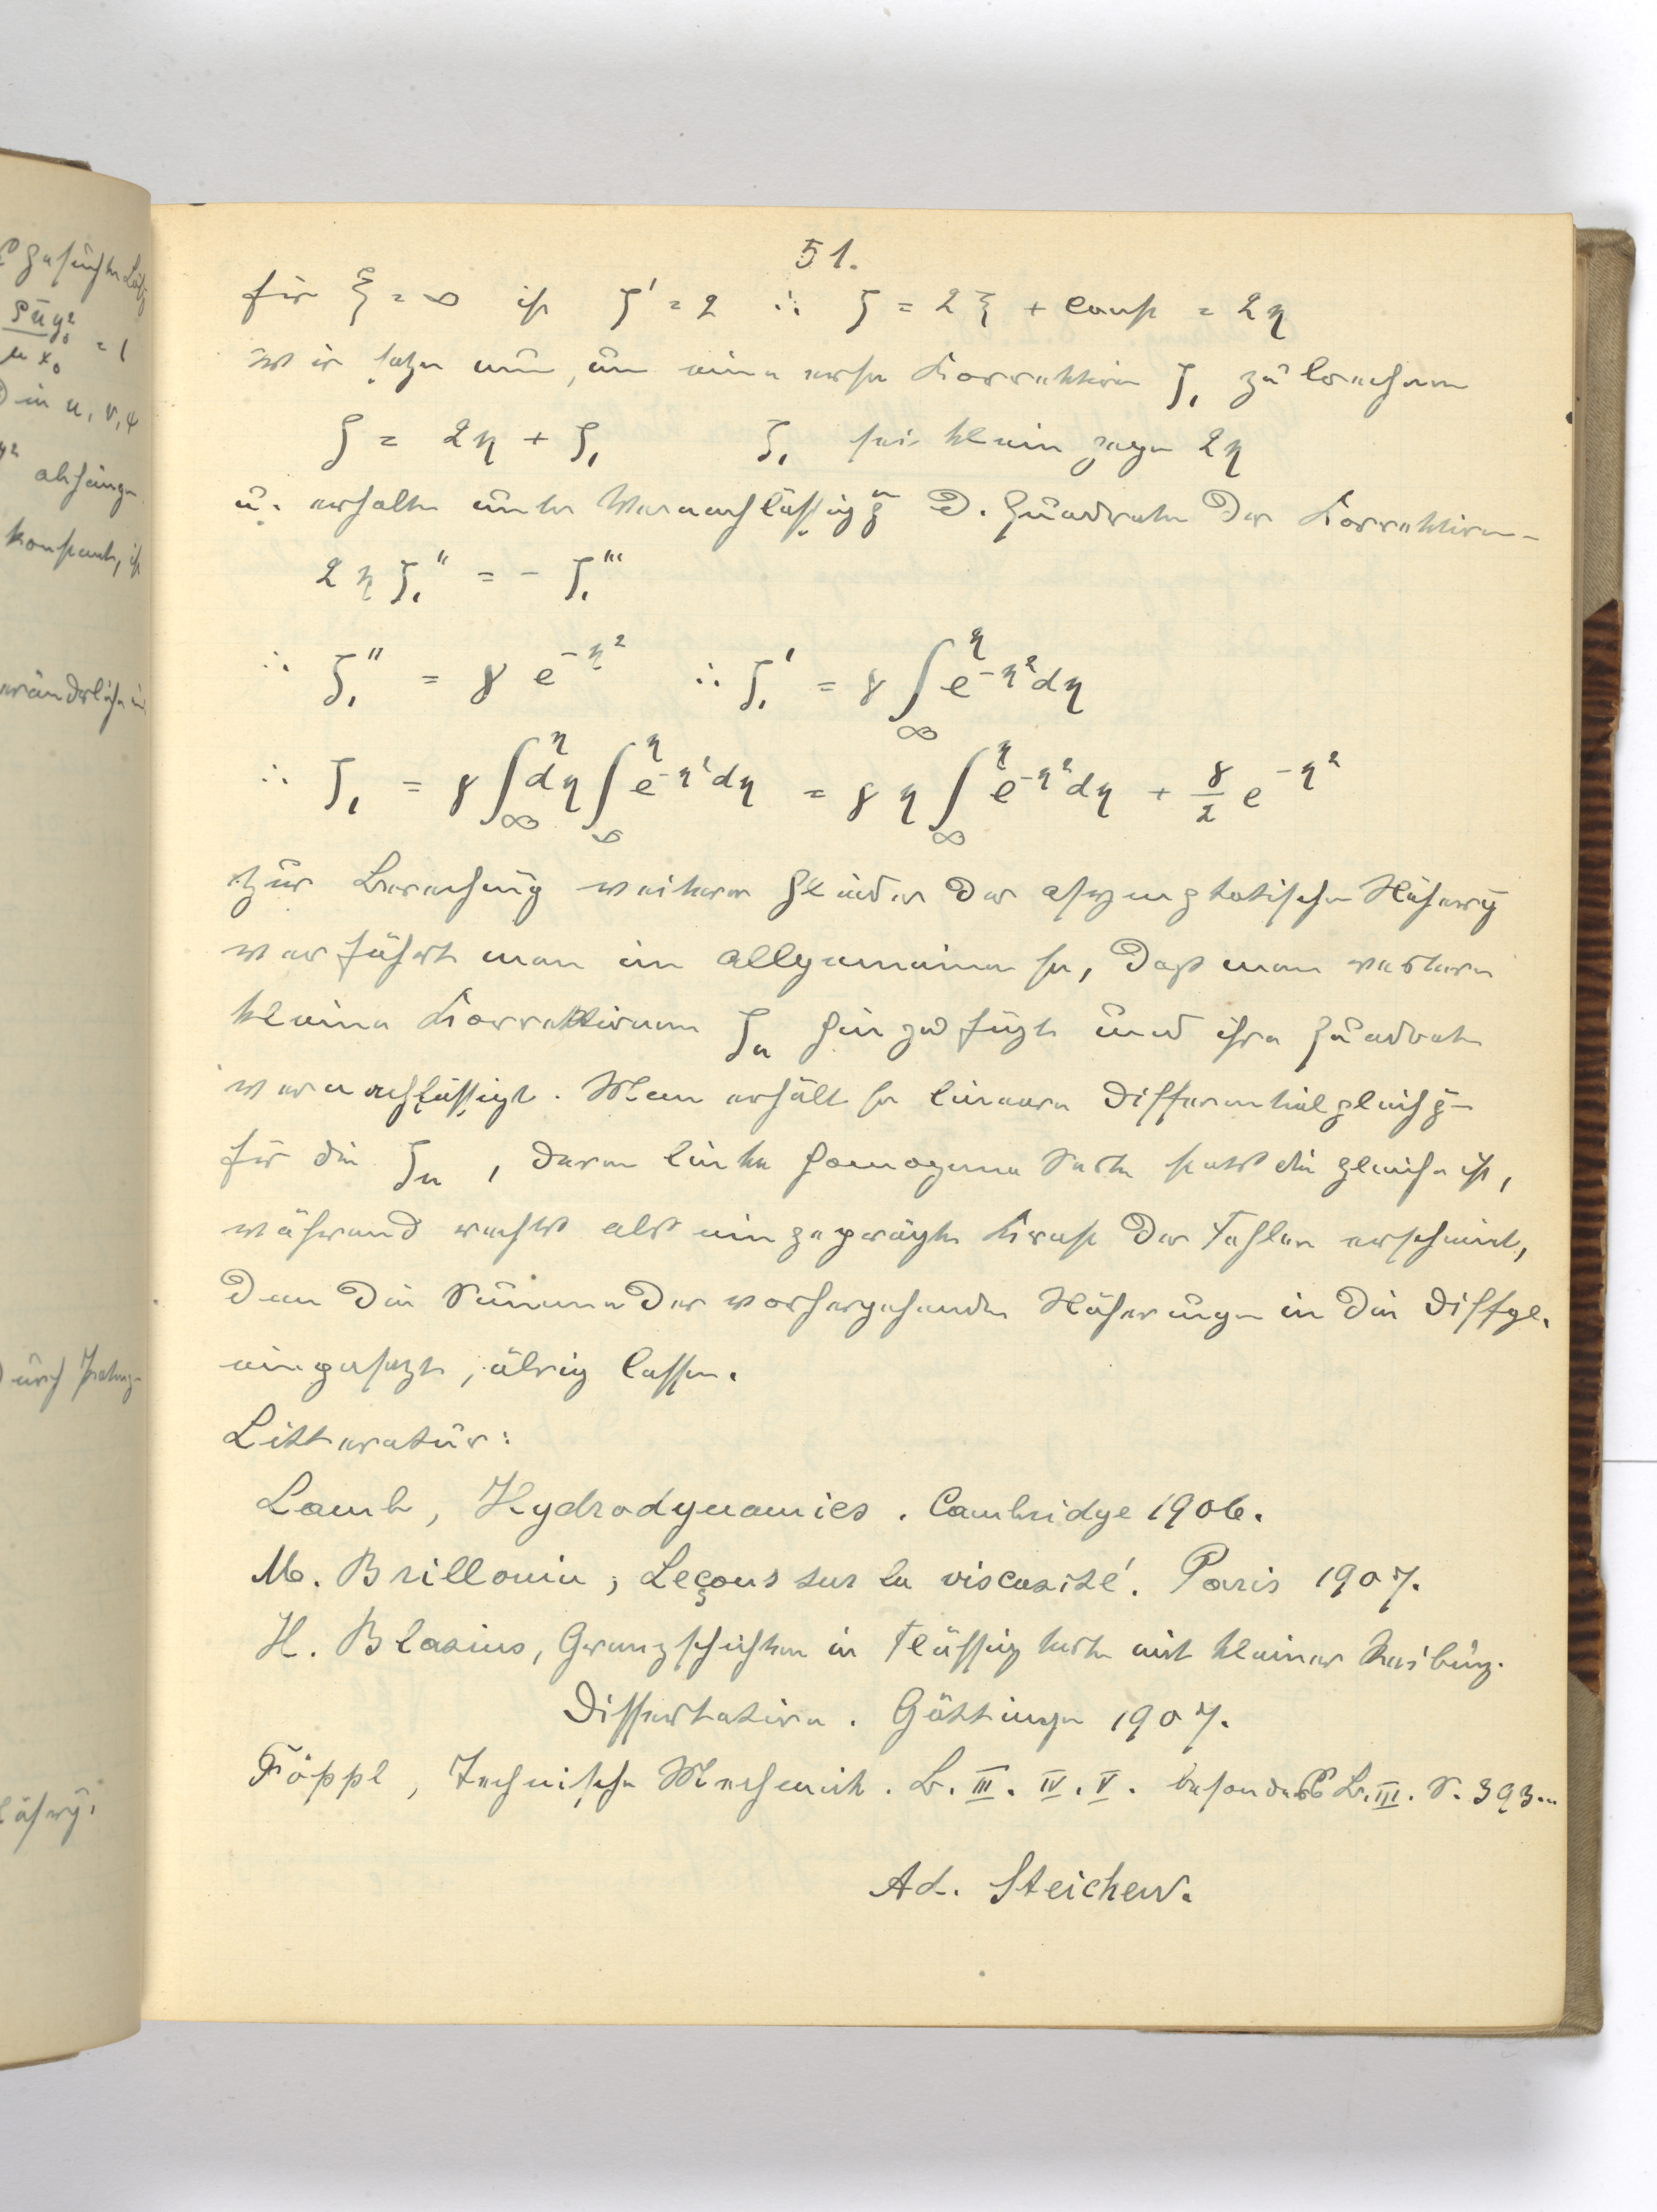 51.
für ξ = ∞ ist ζ' = 2 ∴ ζ = 2ξ + const = 2η
wir setzen nun, um eine erste Korrektion ζ₁ zu berechnen
ζ = 2η + ζ₁ ζ₁ sei klein gegen 2η
u. erhalten unter Vernachlässigg d. Quadrate der Korrektionen
2ηζ₁'' = - ζ₁'''
∴ ζ₁'' = γ e^{-η²} ∴ ζ₁' = γ ∫_∞^η e^{-η²} dη
∴ ζ₁ = γ ∫_∞^η dη ∫_∞^η e^{-η²} dη = γ η ∫_∞^η e^{-η²} dη + γ/2 e^{-η²}
Zur Berechnung weiterer Glieder der asymptotischen Näherung
verfährt man im allgemeinen so, dass man weitere
kleine Korrektionen ζₙ hinzufügt und ihre Quadrate
vernachlässigt. Man erhält so lineare Differentialgleichg
für die ζₙ, deren linke homogene Seite stets die gleiche ist,
während rechts als eingeprägte Kraft der Fehler erscheint,
den die Summe der vorhergehenden Näherungen in die Diffgl.
eingesetzt, übrig lassen.
Litteratur:
Lamb, Hydrodynamics. Cambridge 1906.
M. Brillouin, Leçons sur la viscosité. Paris 1907.
H. Blasius, Grenzschichten in Flüssigkeiten mit kleiner Reibung.
Dissertation. Göttingen 1907.
Föppl, Technische Mechanik. B. III. IV. V. besonders B. III. S. 393..
Ad. Steichen.
ρ ū y₀² / μ x₀ = 1
in u, v, ψ
y² abhängen
konstant, ist